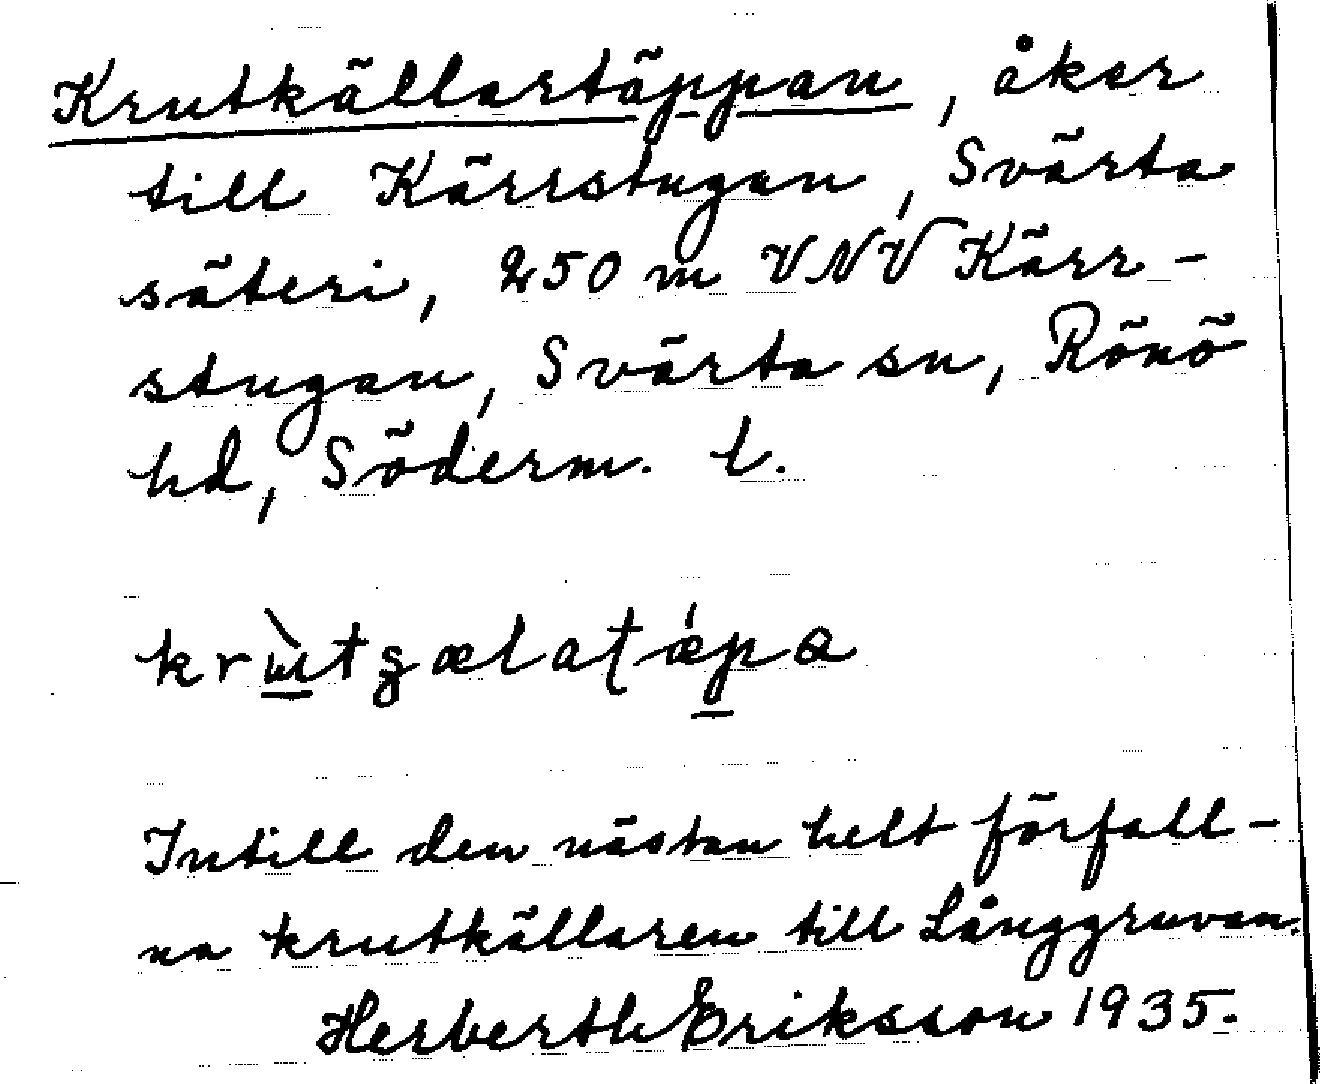 Krutkällartäppan, åker
till Kärrstugan, Svärta
säteri, 250 m VNV Kärr-
stugan, Svärta sn, Rönö
hd, Söderm. l.
Intill den nästan helt förfall-
na krutkällaren till Långgruvan.
Herberth Eriksson 1935.